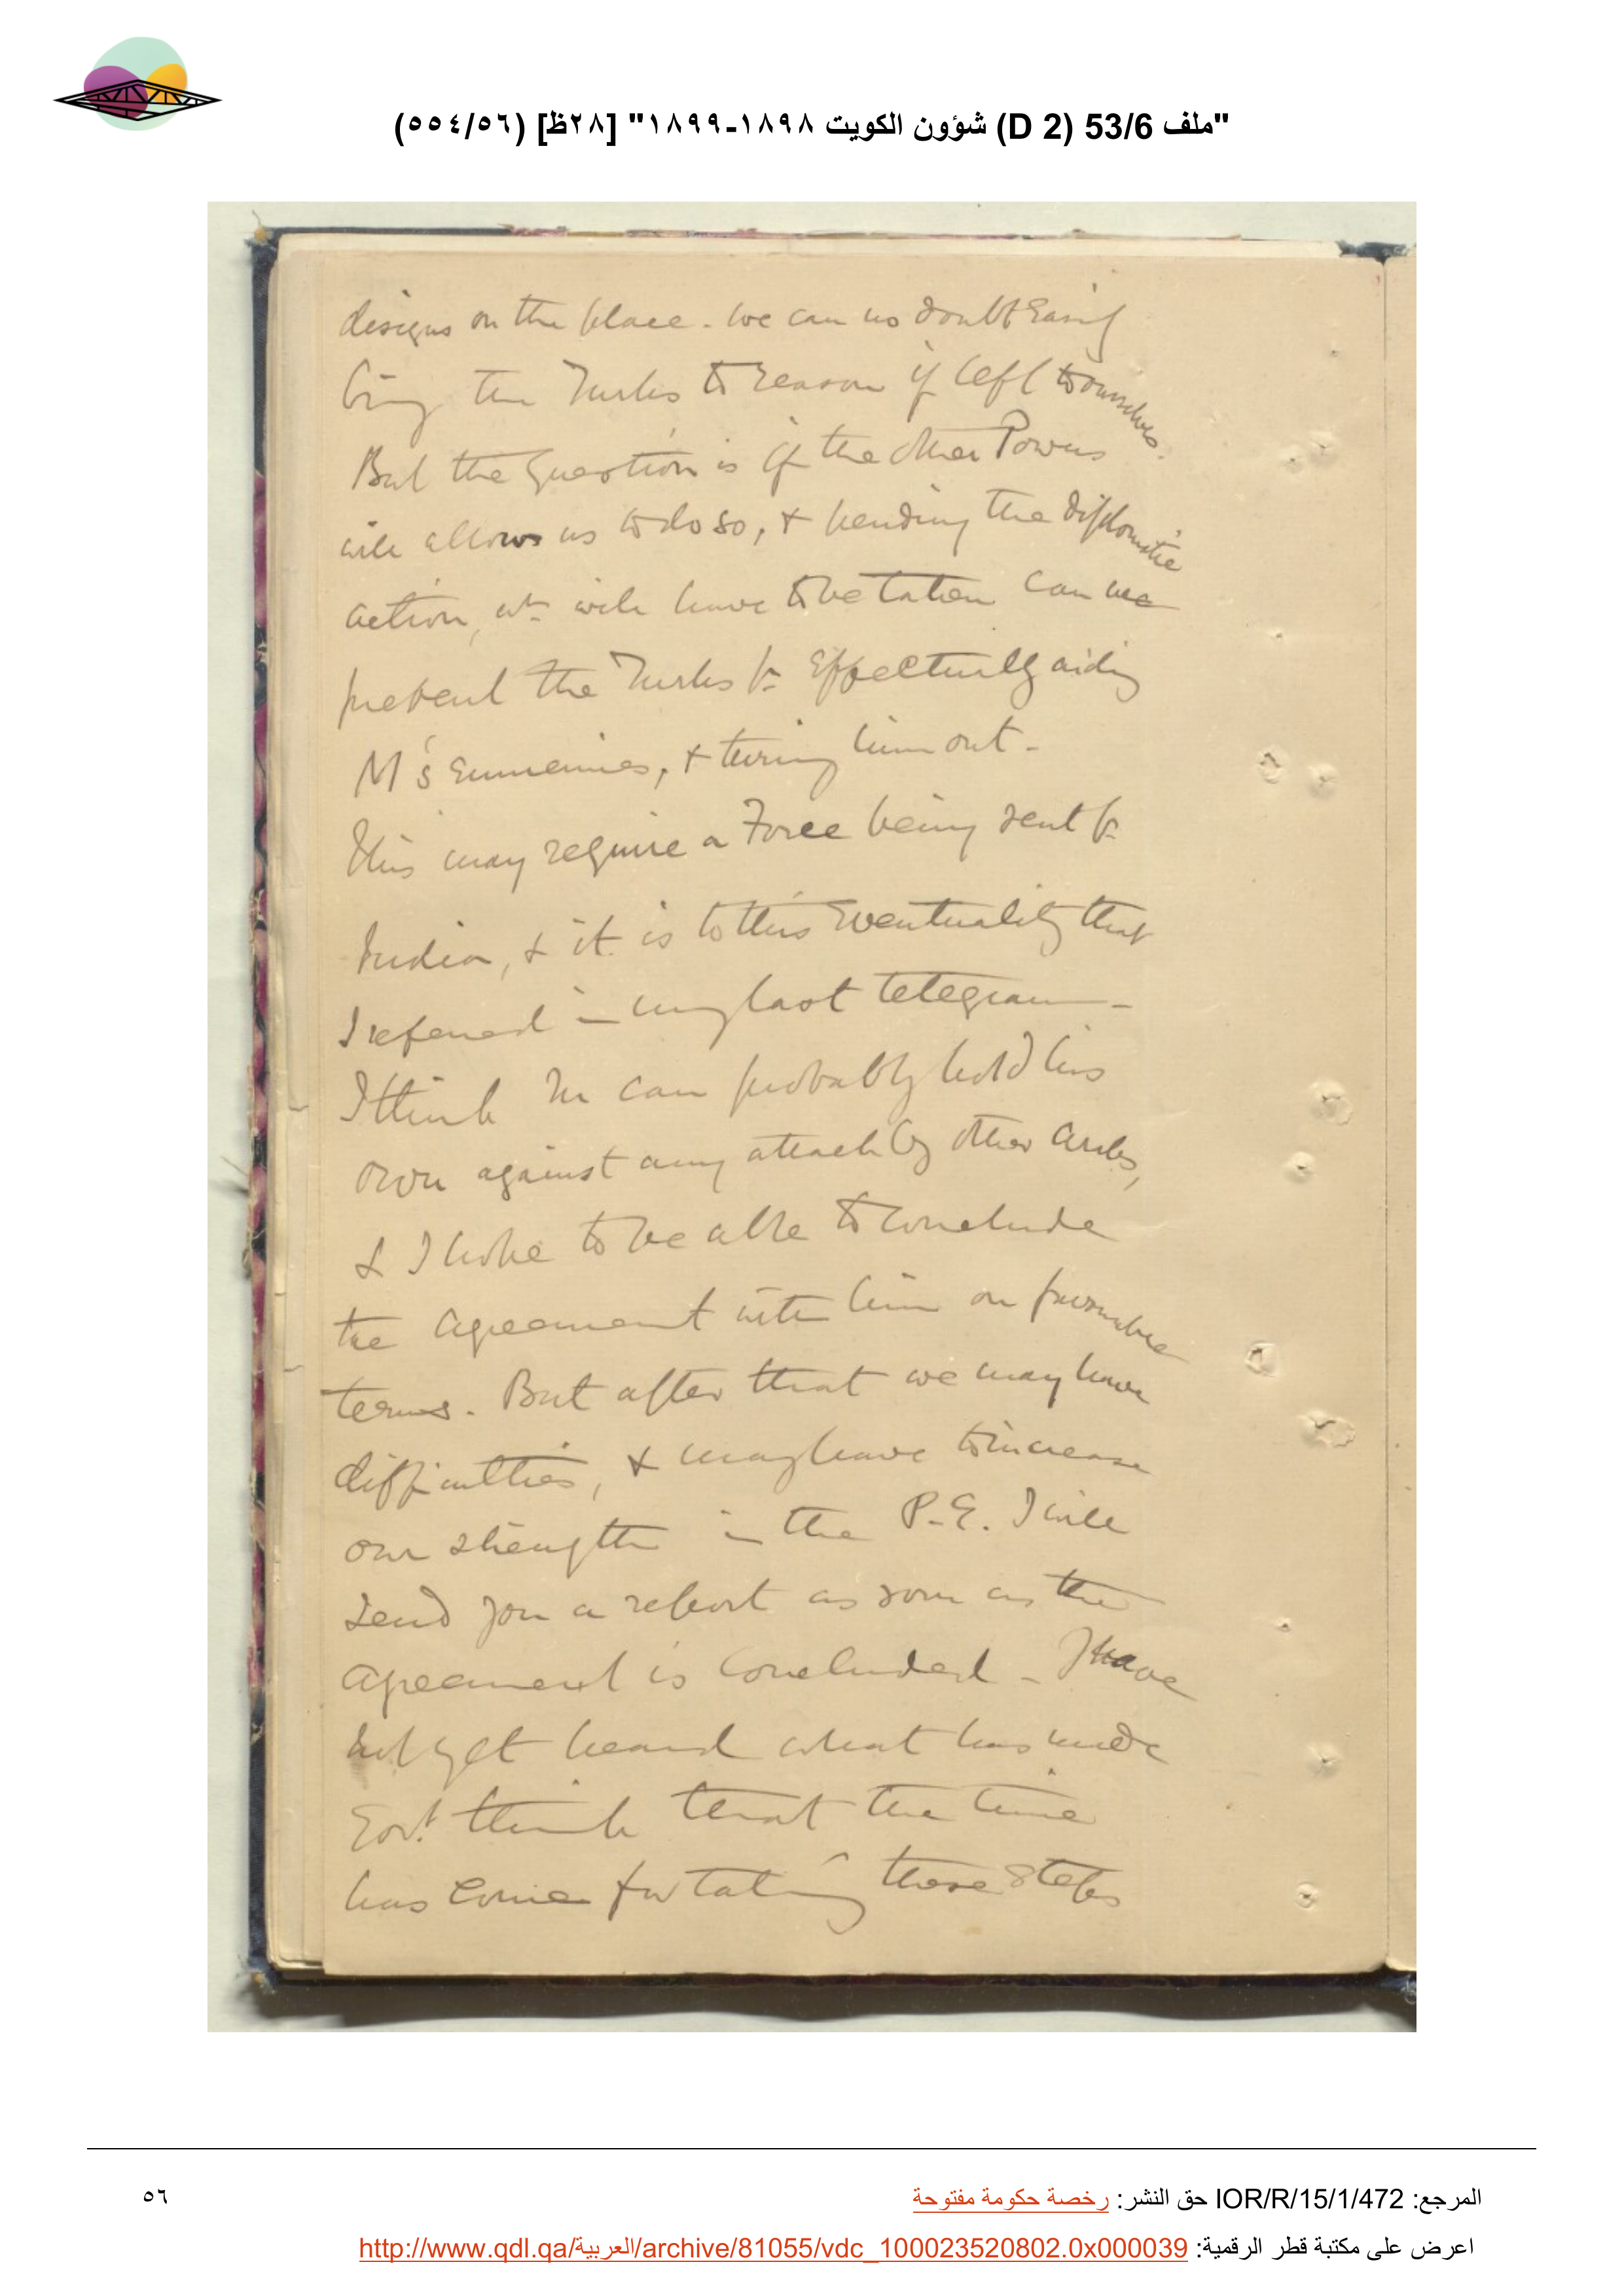 "ملف 53/6 (D 2) شؤون الكويت ١٨٩٨-١٨٩٩" [٢٨ظ] (٥٥٤/٥٦)
designs on the place. We can no doubt easily
bring the Turks to reason if left to ourselves.
But the question is if the other Powers
will allow us to do so, & pending the diplomatic
action, wh will have to be taken can we
prevent the Turks fm effectually aiding
M's ennemies, & turning him out.
This may require a Force being sent fm
India, & it is to this eventuality that
I referred in my last telegram -
I think M can probably hold his
own against any attack by other Arabs,
& I hope to be able to conclude
the agreement with him on favourable
terms. But after that we may have
difficulties, & may have to increase
our strength in the P.G. I will
send you a report as soon as the
agreement is concluded - I have
not yet heard what has made
Govt think that the time
has come for taking these steps
المرجع: IOR/R/15/1/472 حق النشر: رخصة حكومة مفتوحة
٥٦
اعرض على مكتبة قطر الرقمية: http://www.qdl.qa/العربية/archive/81055/vdc_100023520802.0x000039